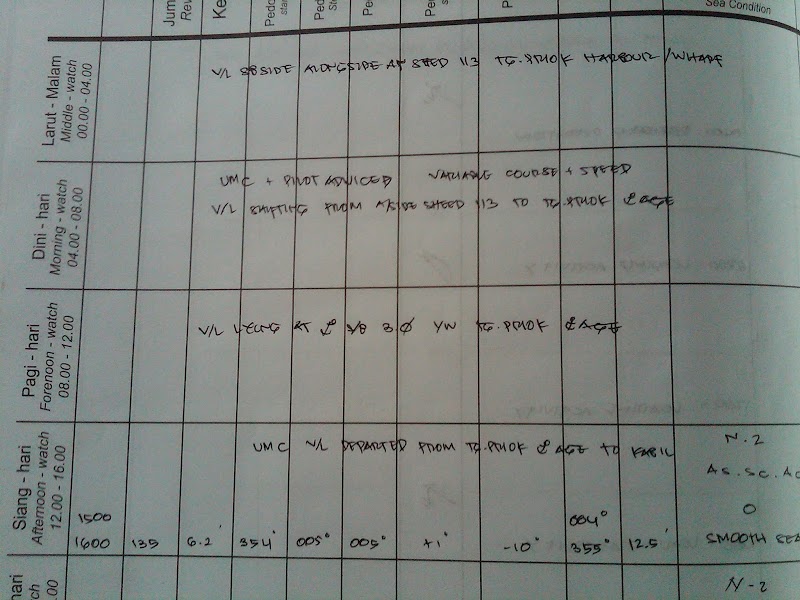 Jum
Rev
Ke
Pedo
Ped
Pe
Pe
P
Sea Condition
Larut - Malam
Middle - watch
00.00 - 04.00
V/L SBSIDE ALONGSIDE AT SHED 113 TG.PRIOK HARBOUR / WHARF
Dini - hari
Morning - watch
04.00 - 08.00
UMC + PILOT ADVICED VARIABLE COURSE + SPEED
V/L SHIFTING FROM A/SIDE SHED 113 TO TG.PRIOK AGE
Pagi - hari
Forenoon - watch
08.00 - 12.00
V/L LYING AT S/B 3 YW TG.PRIOK AGE
Siang - hari
Afternoon - watch
12.00 - 16.00
UMC V/L DEPARTED FROM TG.PRIOK AGE TO KABIL
N.2
AS.SC.AC
1500 004° O
1600 135 6.2' 354° 005° 005° +1° -10° 355° 12.5' SMOOTH SEA
hari
ch
.00
N-2